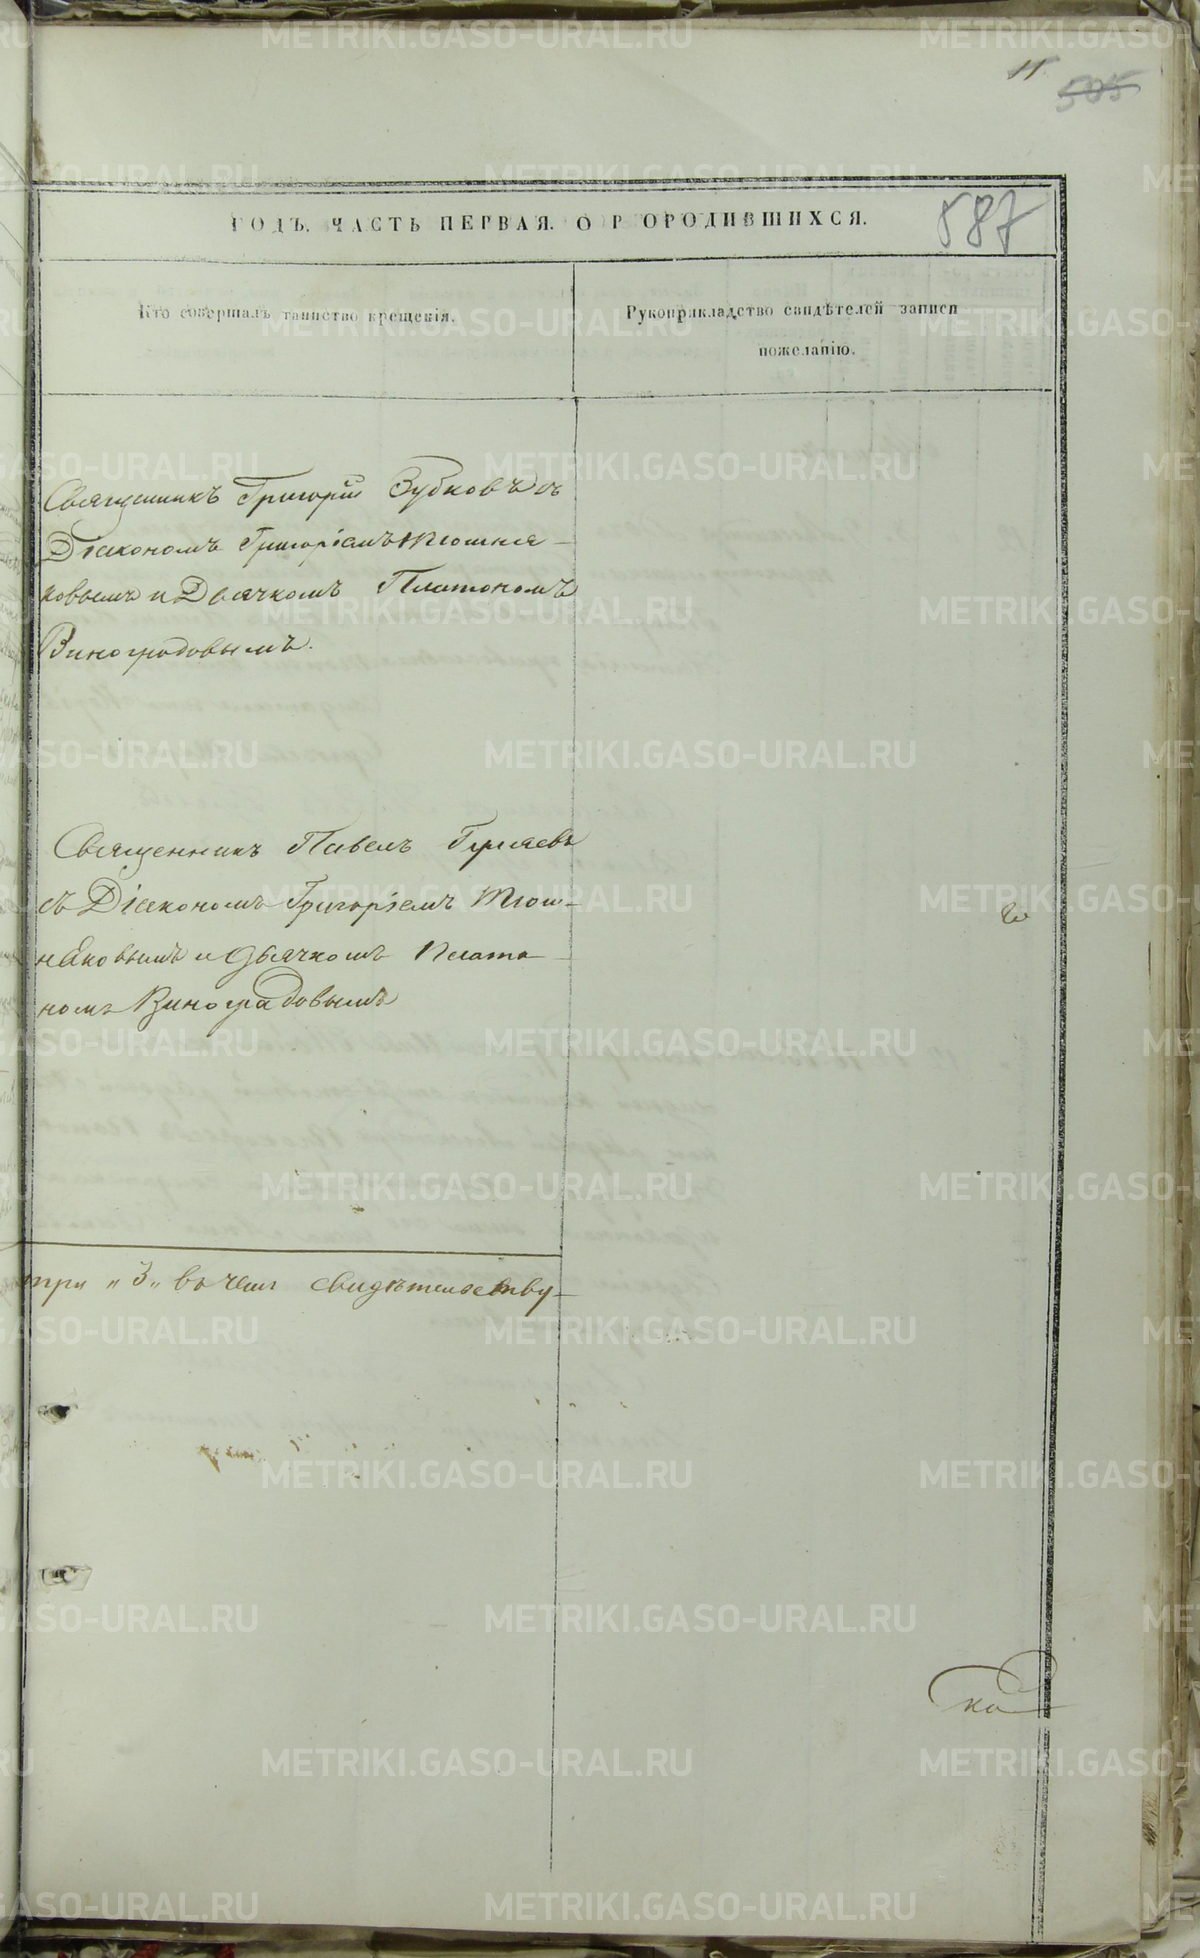 11
505
587
ГОДЪ. ЧАСТЬ ПЕРВАЯ. О Р ОРОДИВШИХСЯ.
Кто совершалъ таинство крещенія.
Рукоприкладство свидѣтелей записи
пожеланію.
Священникъ Григорій Зубковъ съ
Діакономъ Григоріемъ Тюшня-
ковымъ и Дьячкомъ Платономъ
Виноградовымъ.
Священникъ Павелъ Гуляевъ
съ Діакономъ Григоріемъ Тюш-
няковымъ и Дьячкомъ Плато
номъ Виноградовымъ
три „3„ въ чемъ свидѣтельству-
METRIKI.GASO-URAL.RU